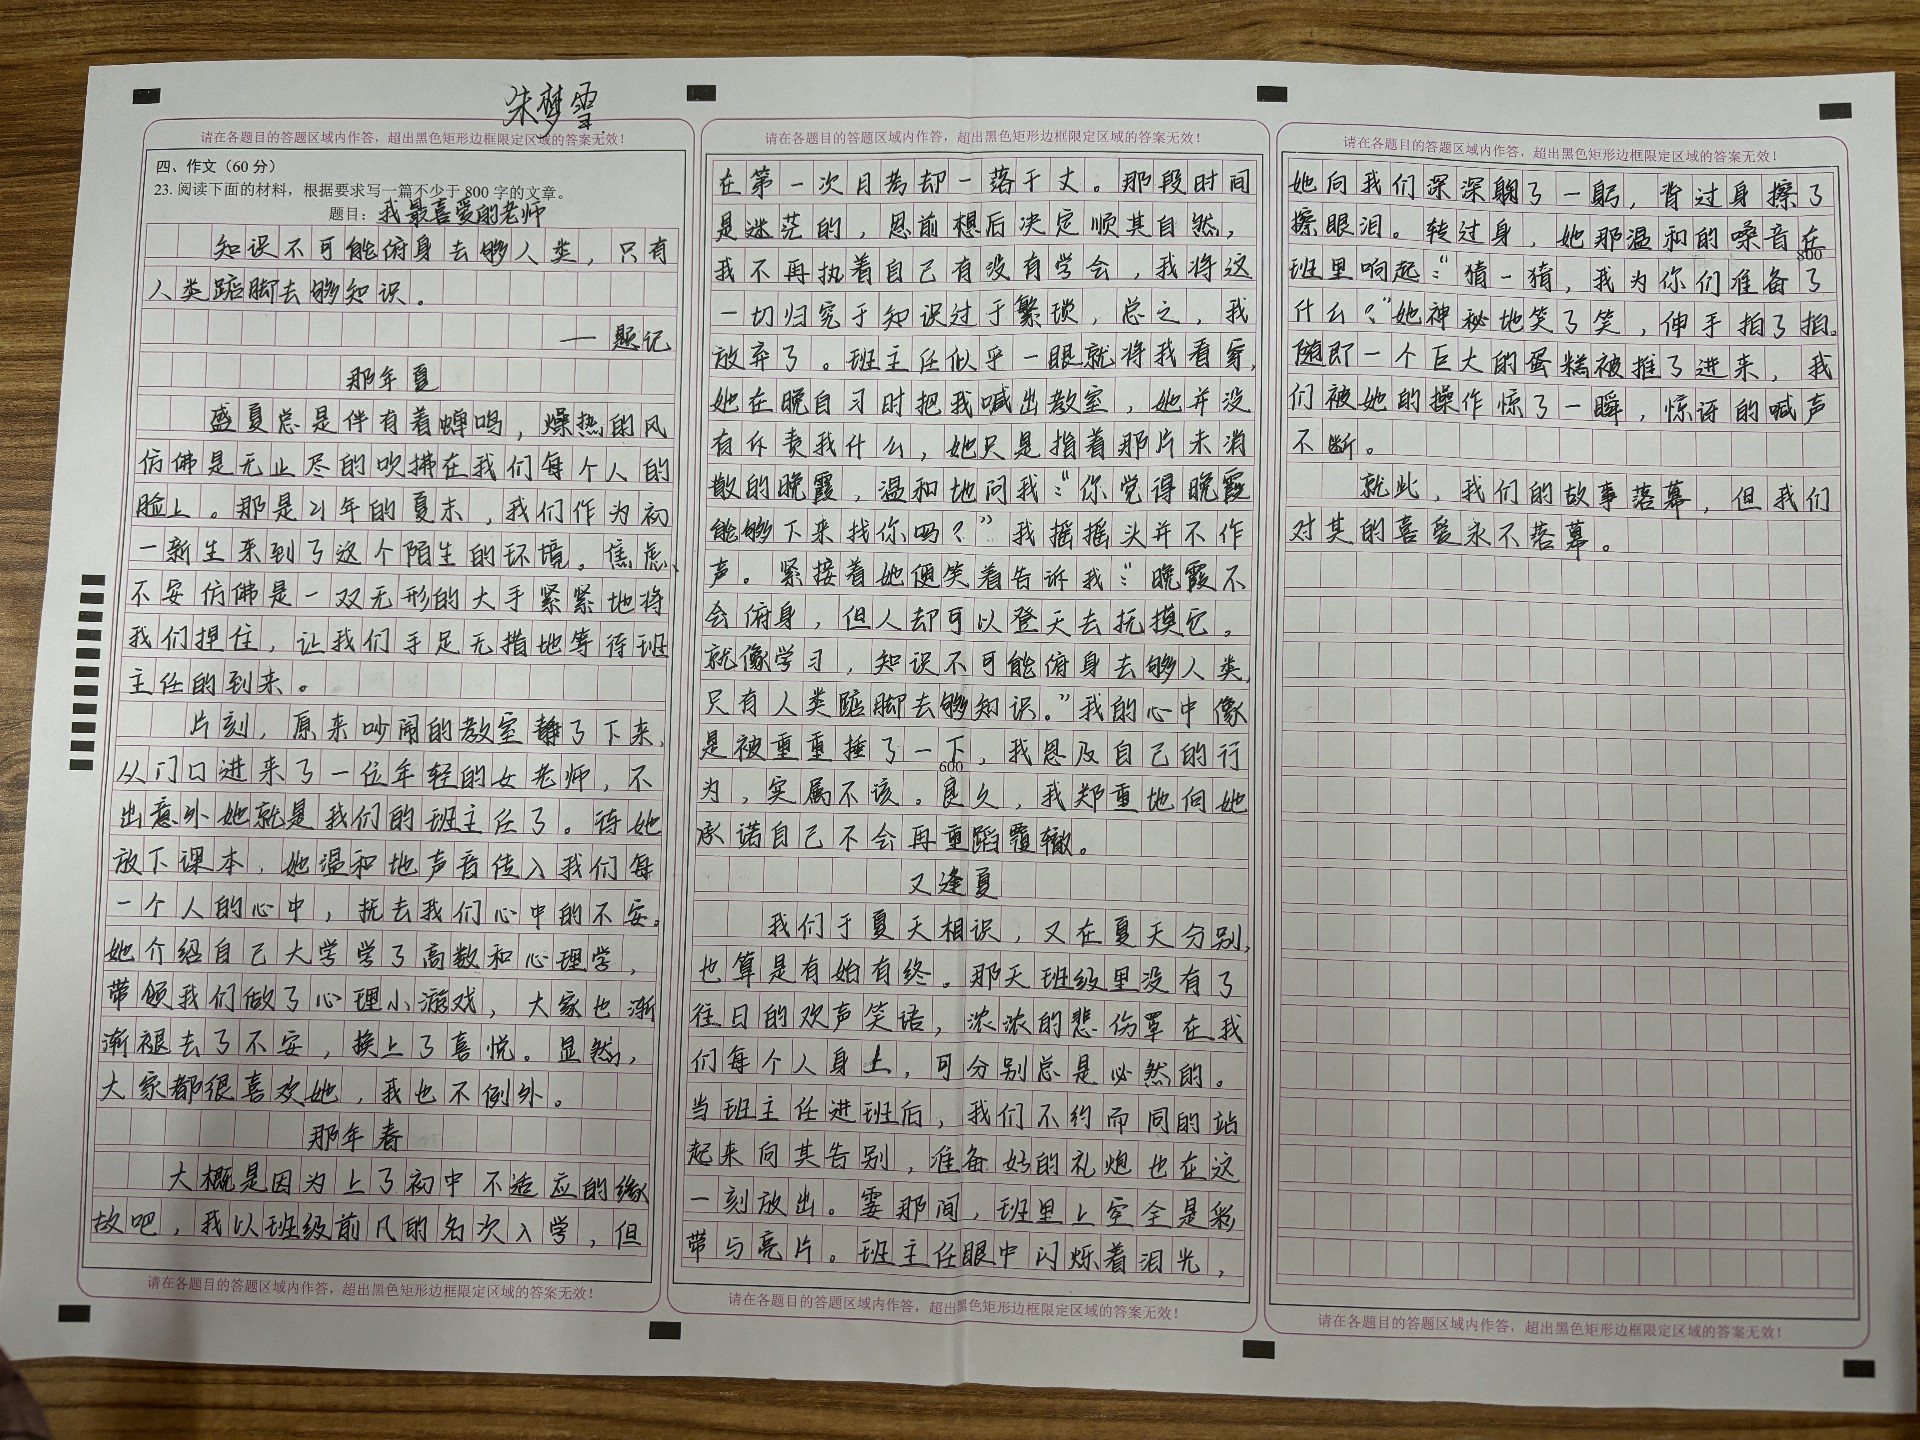 朱梦雪
请在各题目的答题区域内作答，超出黑色矩形边框限定区域的答案无效！
四、作文（60 分）
23. 阅读下面的材料，根据要求写一篇不少于 800 字的文章。
题目：我最喜爱的老师
知识不可能俯身去够人类，只有
人类踮脚去够知识。
——题记
那年夏
盛夏总是伴有着蝉鸣，燥热的风
仿佛是无止尽的吹拂在我们每个人的
脸上。那是21年的夏末，我们作为初
一新生来到了这个陌生的环境。焦虑、
不安仿佛是一双无形的大手紧紧地将
我们捏住，让我们手足无措地等待班
主任的到来。
片刻，原来吵闹的教室静了下来，
从门口进来了一位年轻的女老师，不
出意外她就是我们的班主任了。待她
放下课本，她温和地声音传入我们每
一个人的心中，抚去我们心中的不安。
她介绍自己大学学了高数和心理学，
带领我们做了心理小游戏，大家也渐
渐褪去了不安，换上了喜悦。显然，
大家都很喜欢她，我也不例外。
那年春
大概是因为上了初中不适应的缘
故吧，我以班级前几的名次入学，但
请在各题目的答题区域内作答，超出黑色矩形边框限定区域的答案无效！
请在各题目的答题区域内作答，超出黑色矩形边框限定区域的答案无效！
在第一次月考却一落千丈。那段时间
是迷茫的，思前想后决定顺其自然，
我不再执着自己有没有学会，我将这
一切归究于知识过于繁琐，总之，我
放弃了。班主任似乎一眼就将我看穿，
她在晚自习时把我喊出教室，她并没
有斥责我什么，她只是指着那片未消
散的晚霞，温和地问我：“你觉得晚霞
能够下来找你吗？”我摇摇头并不作
声。紧接着她便笑着告诉我：“晚霞不
会俯身，但人却可以登天去抚摸它。
就像学习，知识不可能俯身去够人类，
只有人类踮脚去够知识。”我的心中像
是被重重捶了一下，我思及自己的行
600
为，实属不该。良久，我郑重地向她
承诺自己不会再重蹈覆辙。
又逢夏
我们于夏天相识，又在夏天分别，
也算是有始有终。那天班级里没有了
往日的欢声笑语，浓浓的悲伤罩在我
们每个人身上，可分别总是必然的。
当班主任进班后，我们不约而同的站
起来向其告别，准备好的礼炮也在这
一刻放出。霎那间，班里上空全是彩
带与亮片。班主任眼中闪烁着泪光，
请在各题目的答题区域内作答，超出黑色矩形边框限定区域的答案无效！
请在各题目的答题区域内作答，超出黑色矩形边框限定区域的答案无效！
她向我们深深鞠了一躬，背过身擦了
擦眼泪。转过身，她那温和的嗓音在
800
班里响起：“猜一猜，我为你们准备了
什么？”她神秘地笑了笑，伸手拍了拍。
随即一个巨大的蛋糕被推了进来，我
们被她的操作惊了一瞬，惊讶的喊声
不断。
就此，我们的故事落幕，但我们
对其的喜爱永不落幕。
请在各题目的答题区域内作答，超出黑色矩形边框限定区域的答案无效！